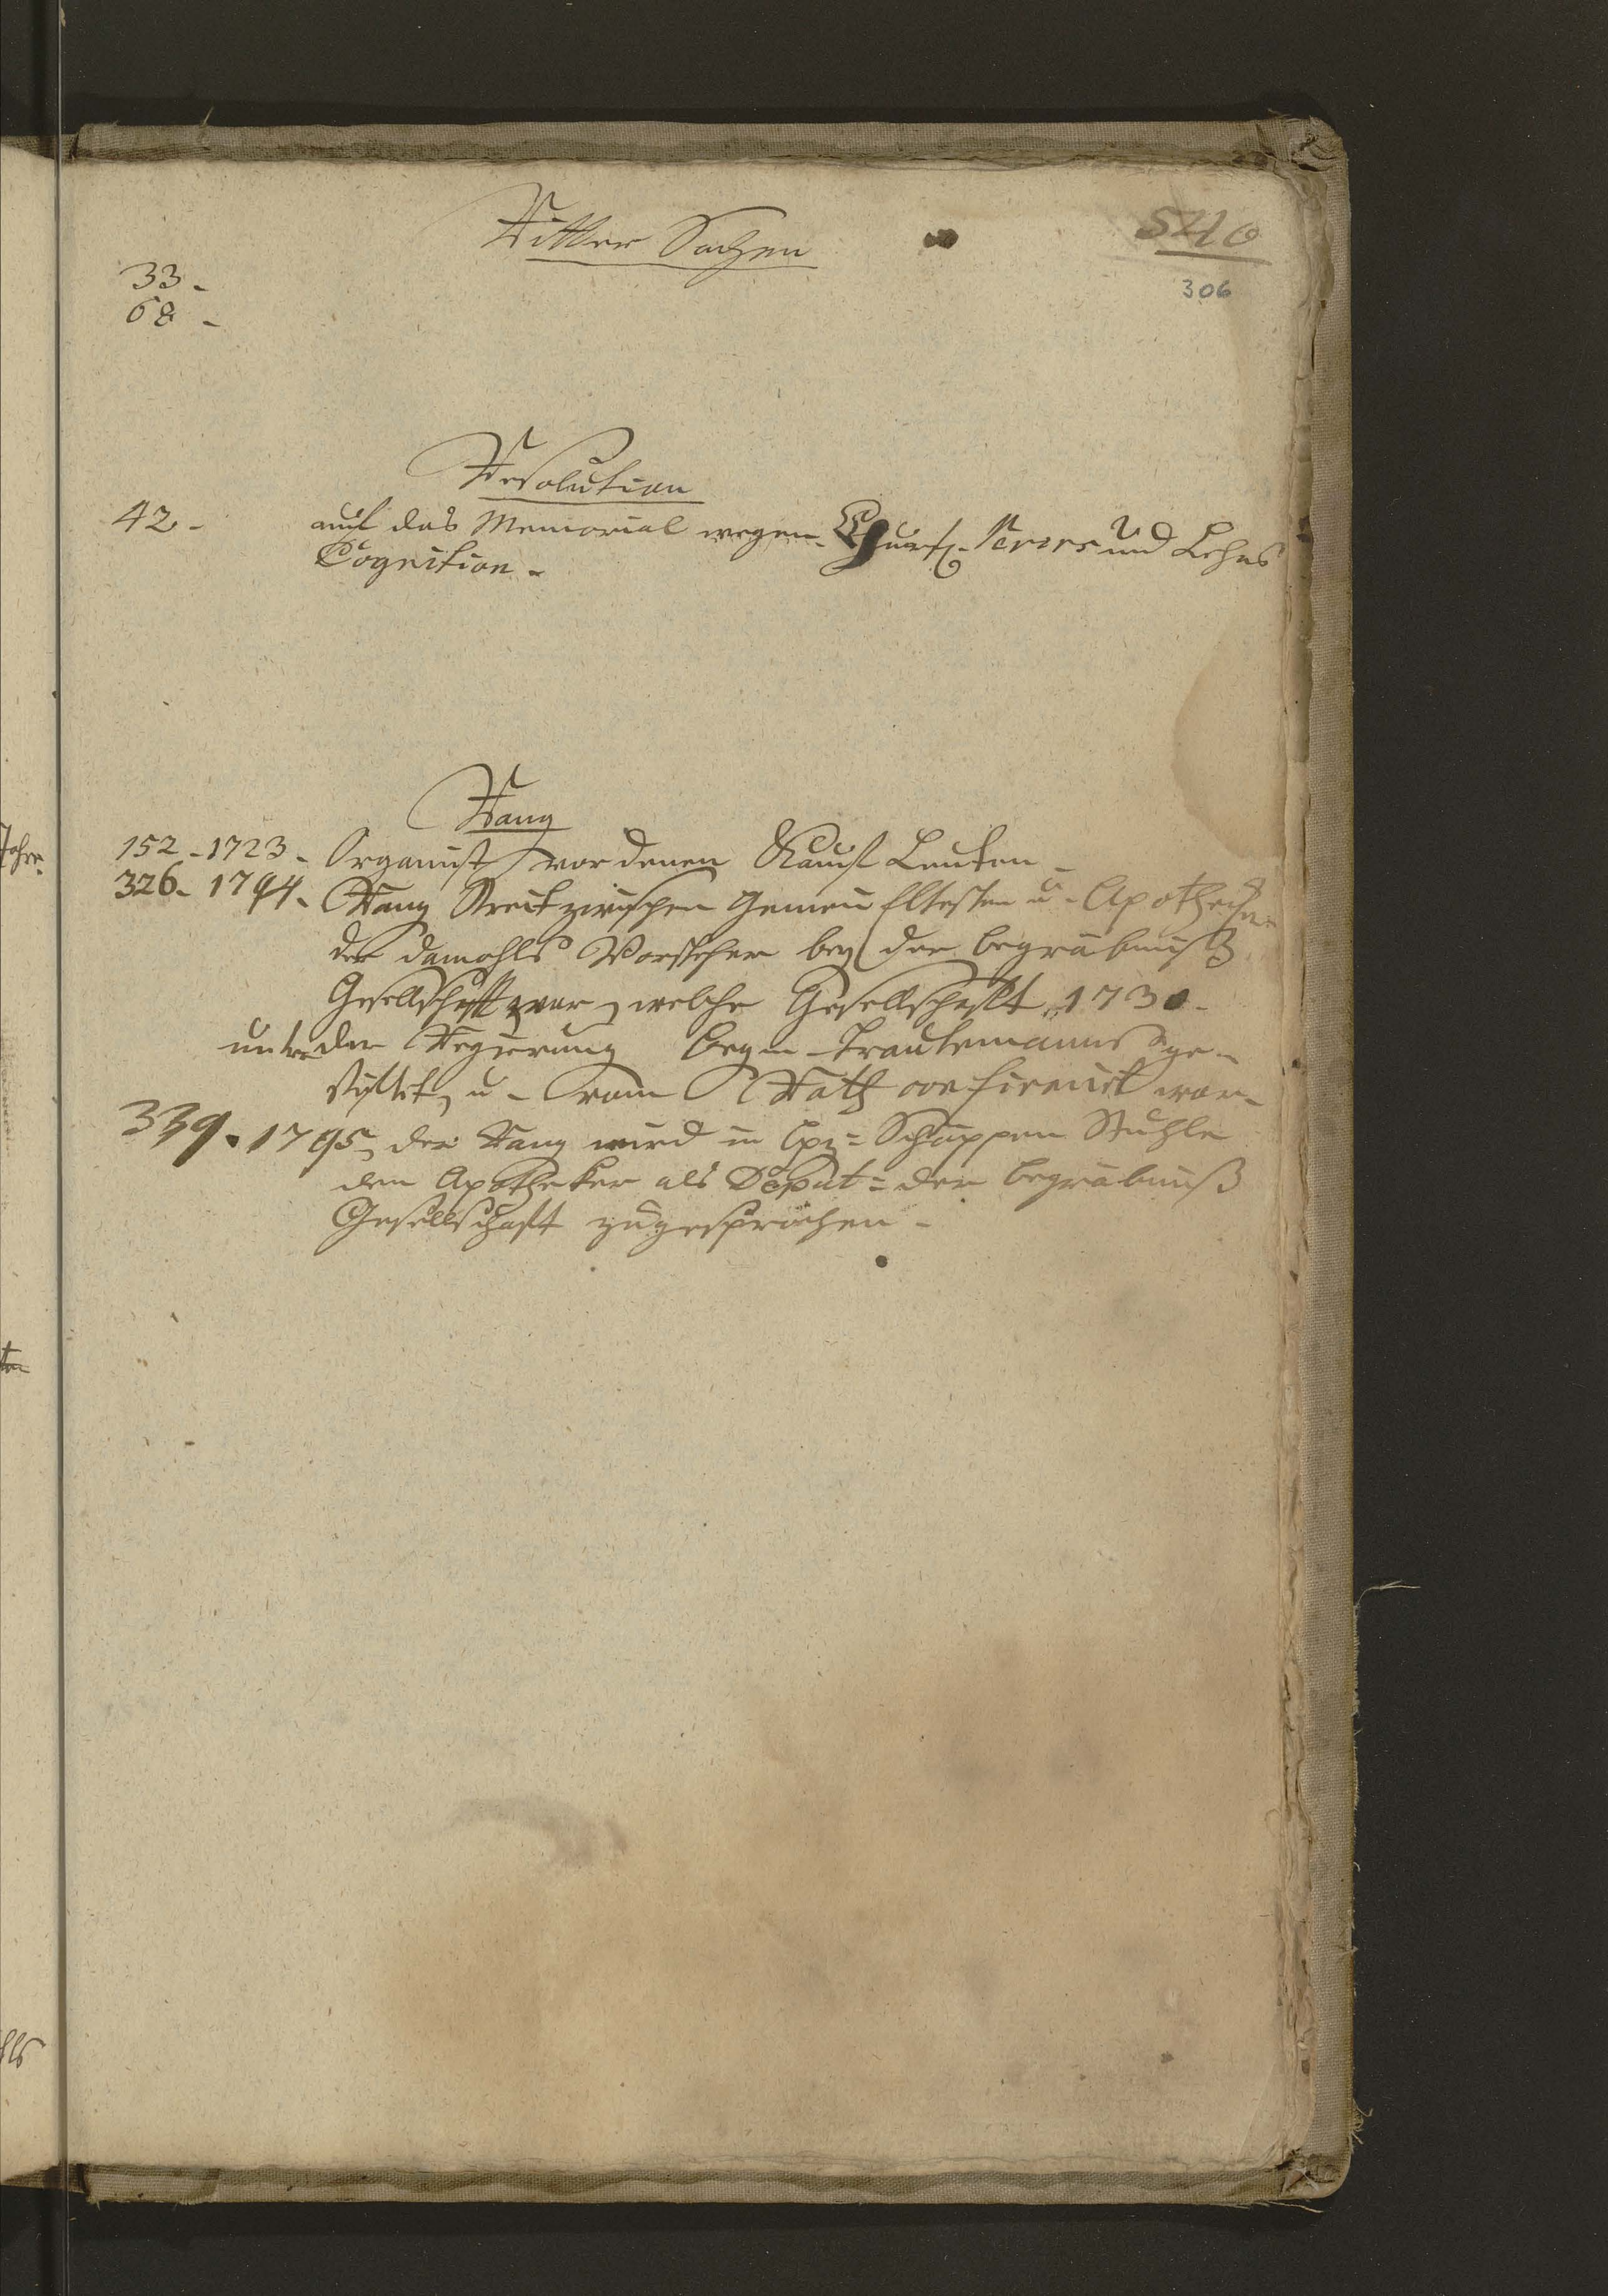 Ritter Sachen
540
306
33 -
68 -
Resolution
42 - auf das Memorial wegen und Lehns
Cognition -
Rang
152 - 1723 - Organist vor denen Kauf Leuten -
326 - 1794 - Rang Streit zwischen Gemein Eltesten u - Apothecker
der damahls Vorsteher bey der begräbniß
Gesellschafft war, welche Gesellschafft 1730 -
unter der Regierung Trautemanns ge-
stifftet, u - vom Rath confirmirt war -
339 - 1795, der Rang wird in Lpz = Schöppen Stuhle
dem Apotheker als Deput = der begräbniß
Gesellschafft zugesprochen -